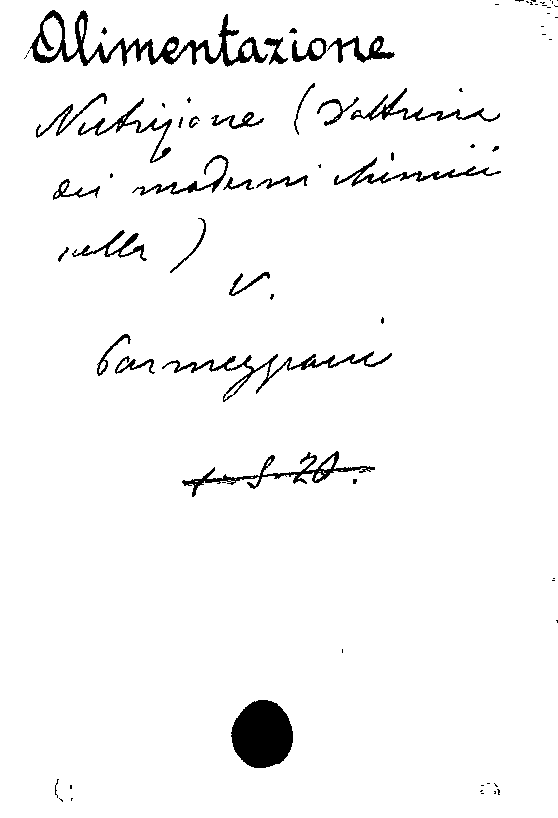 Alimentazione
Nutrizione (Dottrina
dei moderni chimici
sulla)
V.
Parmeggiani